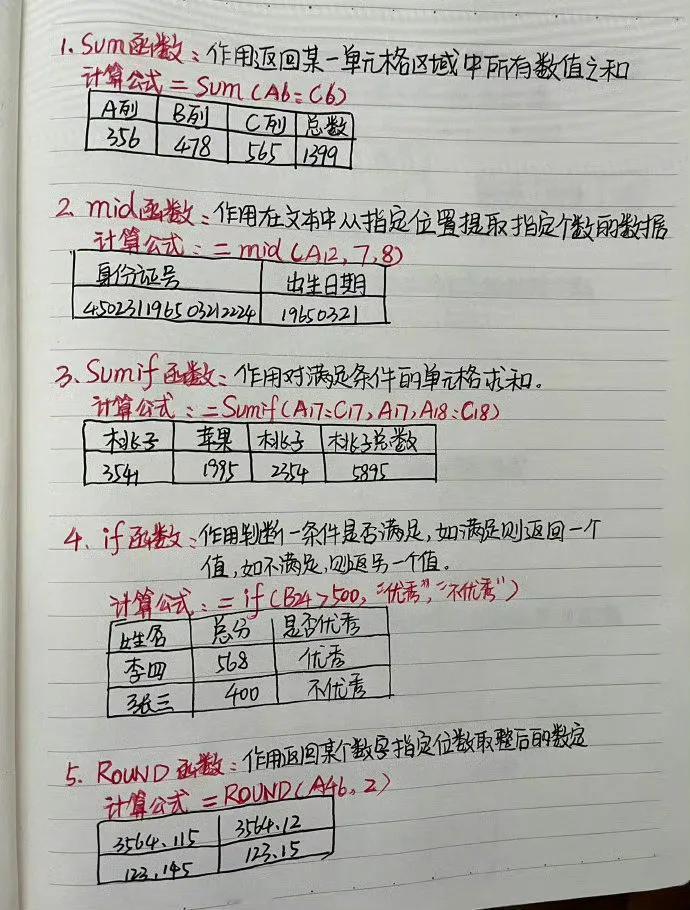 1. Sum函数：作用返回某一单元格区域中所有数值之和
计算公式=Sum(A6:C6)
A列 B列 C列 总数
356 478 565 1399
2. mid函数：作用在文本中从指定位置提取指定个数的数据
计算公式：=mid(A12,7,8)
身份证号 出生日期
450231196503212224 19650321
3. Sumif函数：作用对满足条件的单元格求和。
计算公式：=Sumif(A17:C17,A17,A18:C18)
桃子 苹果 桃子 桃子总数
3541 1995 2354 5895
4. if函数：作用判断一条件是否满足,如满足则返回一个
值,如不满足,则返另一个值。
计算公式：=if(B24>500,"优秀","不优秀")
姓名 总分 是否优秀
李四 568 优秀
张三 400 不优秀
5. ROUND函数：作用返回某个数字指定位数取整后的数定
计算公式=ROUND(A46,2)
3564.115 3564.12
123.145 123.15